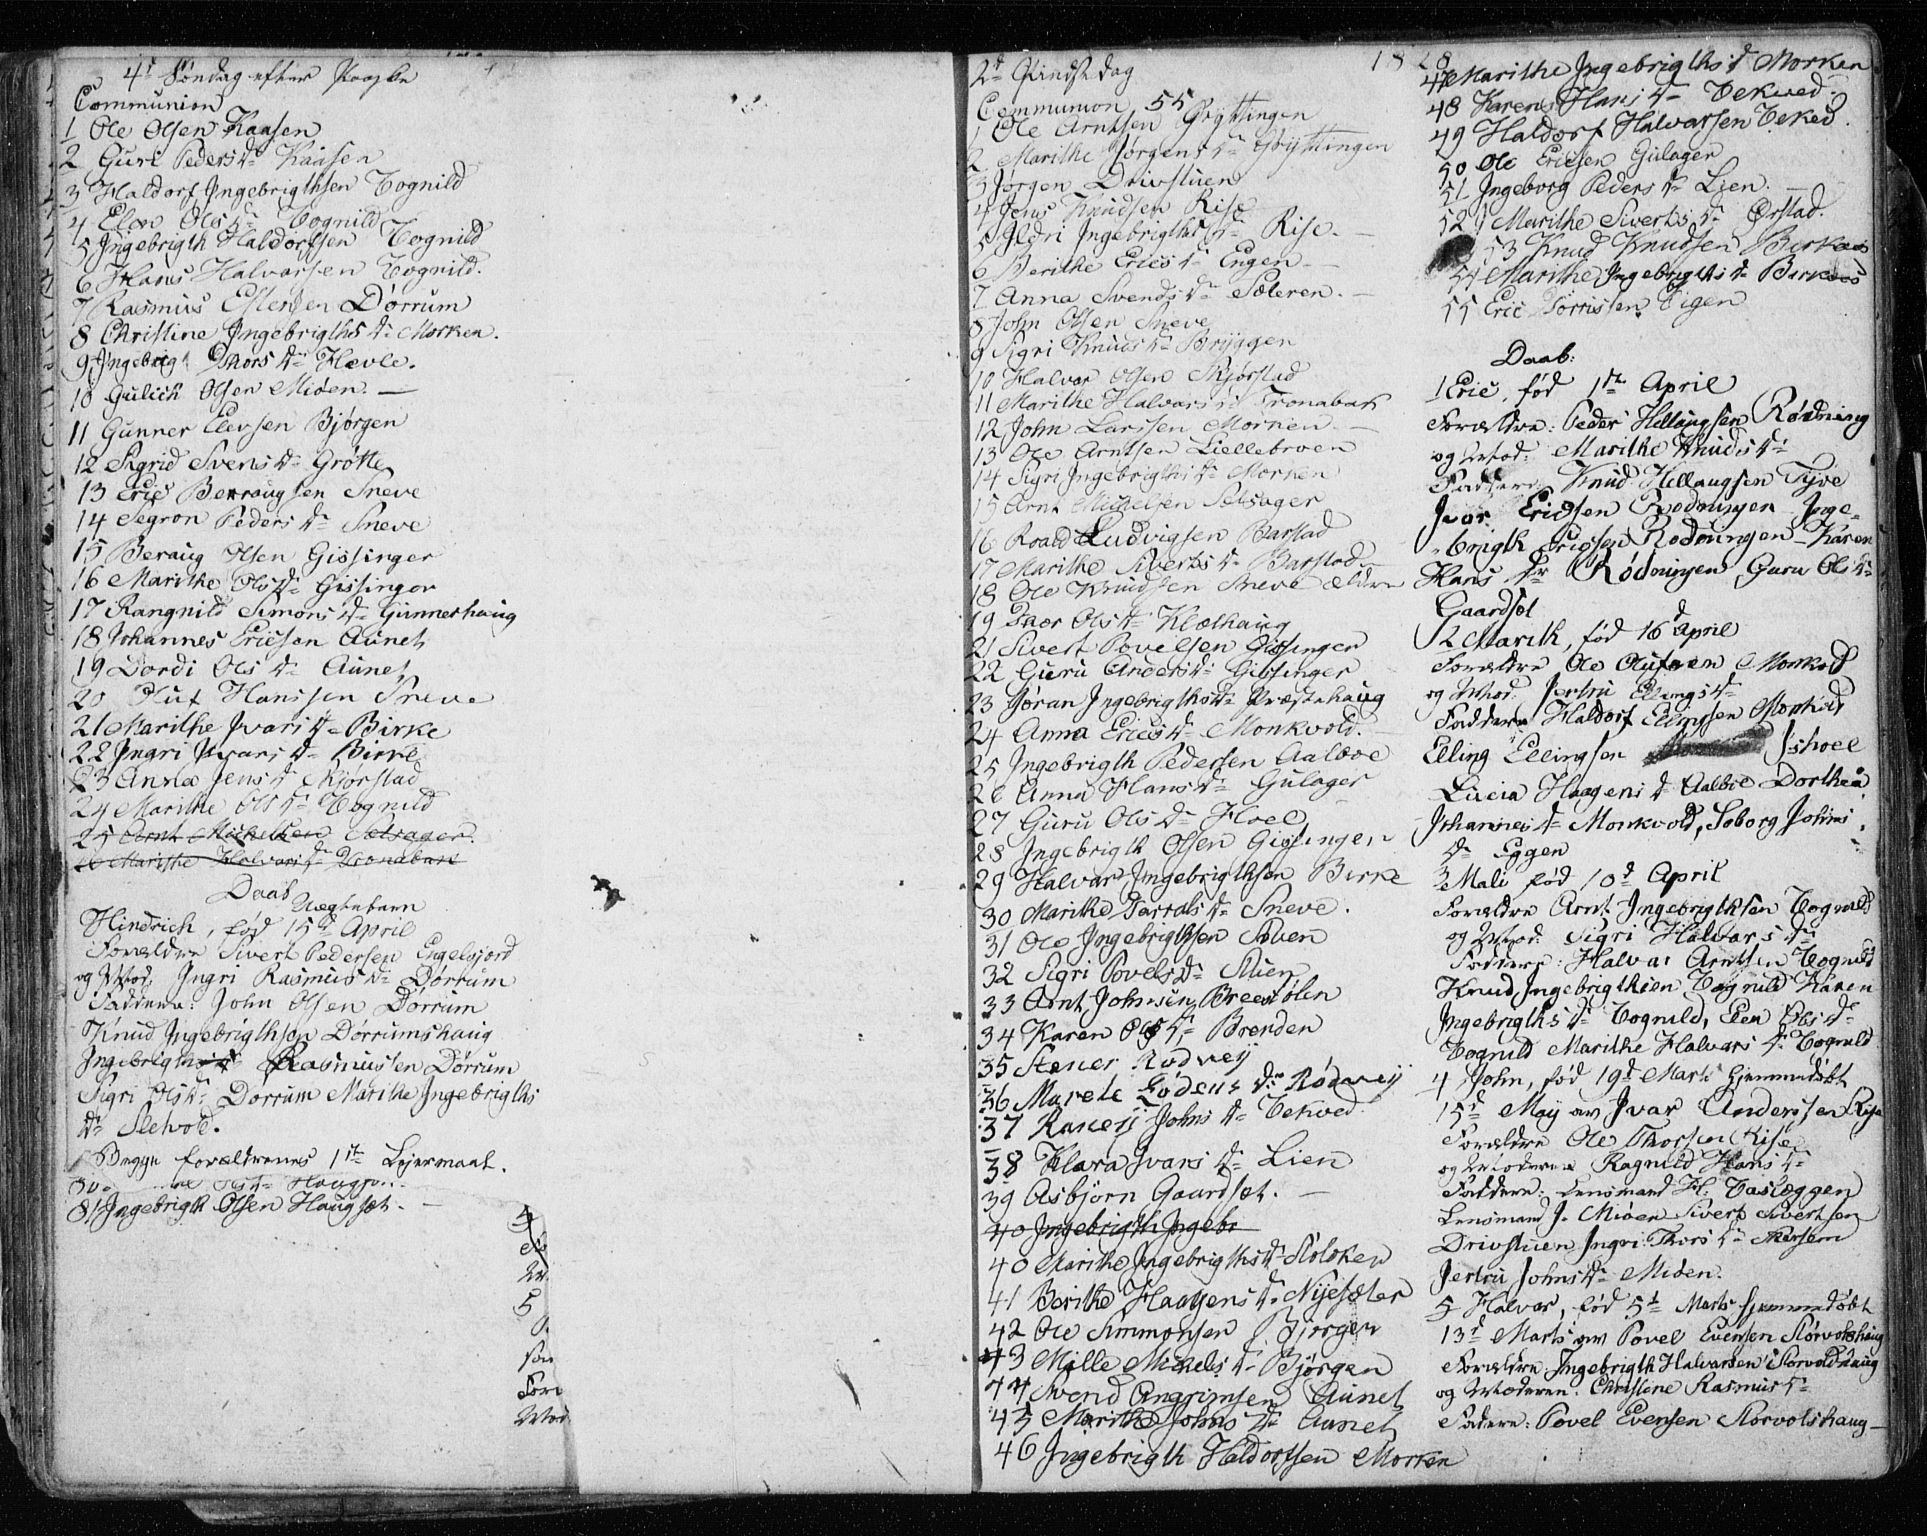 4d Søndag efter Paaske
Communion
1 Ole Olsen Kaasen
2 Guri Pedersdr Kaasen
3 Haldorf Ingebrigthsen Tognild
4 Elen Olsdr Tognild
5 Ingebrigth Haldorfsen Tognild
6 Hans Halvarsen Tognild.
7 Rasmus Estensen Dørrum
8 Christine Ingebrigthsdr Morken.
9 Ingebrigt Thorsdr Hævle.
10 Gulich Olsen Miøen. —
11 Gunner Elevsen Bjørgen
12 Sigrid Svensdr Grøtte
13 Eric Berraugsen Sneve
14 Segron Pedersdr Sneve
15 Beraug Olsen Gissinger
16 Marithe Olsdr Gissinger
17 Rangnild Simonsdr Gunnerhaug
18 Johannes Ericsen Aunet
19 Dordi Olsdr Aunet
20 Oluf Hanssen Sneve
21 Marithe Ivarsdr Birke
22 Ingri Ivarsdr Birke
23 Anna Jensdr Skjørstad
24 Marithe Olsdr Tognild
25 Arnt Michelsen Sætrager.
26 Marithe Halvarsdr Tronabak
Daab
Uægtebarn
Hindrich, fød 15d April
Forældre Sivert Pedersen Engelsjord
og Mod. Ingri Rasmusdr Dørrum
Faddere: John Olsen Dørrum
Knud Ingebrigthsen Dørrumshaug
Ingebrigth Rasmussen Dørrum
Sigri Olsdr Dørrum Marithe Ingebrigths
dr Sletvold.
Begge forældrenes 1ste Lejermaal.
81 Ingebrigth Olsen Haugsæt. —
5
1828
2d Pindsedag
Communion 55
1 Ole Arntsen Gryttingen
2 Marithe Jørgensdr Gryttingen
3 Jørgen Drivstuen
4 Jens Knudsen Rise
5 Ildri Ingebrigthsdr Rise. —
6 Berithe Ericsdr Engen —
7 Anna Svendsdr Sæteren. —
8 John Olsen Sneve
9 Sigri Knudsdr Bryggen
10 Halvor Olsen Skjørstad
11 Marithe Halvarsdr Tronabak
12 John Larssen Mornen. —
13 Ole Arntsen Liellebroen
14 Sigri Ingebrigthsdr Morken
15 Arnt Michelsen Sætrager
16 Roald Ludvigsen Barstad
17 Marithe Sivertsdr Barstad
18 Ole Knudsen Sneve ældre
19 Thor Olsdr Klæthaug
21 Sivert Povelsen Gissinger
22 Guru Andersdr Gissinger
23 Gøran Ingebrigthsdr Præstehaug
24 Anna Ericsdr Monkvold.
25 Ingebrigth Pedersen Aalbøe
26 Anna Hansdr Gulager
27 Guru Olsdr Hoel
28 Ingebrigth Olsen Gissingen
29 Halvar Ingebrigthsen Birke
30 Marithe Tarralsdr Sneve.
31 Ole Ingebrigthsen Stuen
32 Sigri Povelsdr Stuen
33 Arnt Johnsen Breesølen
34 Karen Olsdr Brenden
35 Stener Rødvej
36 Marete Lødensdr Rødvej
37 Ranej Johnsdr Vekved.
38 Klara Ivarsdr Lien
39 Asbjørn Gaardsæt. —
40 Ingebrigth Ingebr
40 Marithe Ingebrigthsdr Stølsken
41 Berithe Haagensdr Nijesæter
42 Ole Simmonsen Bjørgen
43 Mille Michelsdr Bjørgen
44 Svend Anggrimsen Aunet
45 Marithe Johnsdr Aunet
46 Ingebrigth Haldorfsen Morken
47 Marithe Ingebrigthsdr Morken
48 Karen Hansdr Vekved
49 Haldorf Halvarsen Veked.
50 Ole Ericsen Gulager
51 Ingeborg Pedersdr Lien. —
52 Marithe Sivertsdr Ørstad.
53 Knud Knudsen Birkaas
54 Marithe Ingebrigthsdr Birkaas
55 Eric Torrissen Vigen
Daab:
1 Eric, fød 1ste April
Forældre: Peder Hellaugsen Rødning
og Mod: Marithe Knudsdr
Faddere Knud Hellaugsen Tyve
Ivar Ericsen Rodningen Inge-
brigth Ericsen Rodningen Karen
Hansdr Rødningen Guru Olsdr
Gaardsæt
2 Marith, fød 16d April
Forældre Ole Olufsen Monkvold
og Mod. Jertru Ellingsdr
Faddere Haldorf Ellingsen Monkvold
Elling Ellingsen Ishoel
Lucia Haagensdr Aalbøe Dorthea
Johannesdr Monkvold, Soborg Johns
dr Eggen
3 Mali fød 10d April
Forældre Arnt Ingebrigthsen Tognild
og Mod. Sigri Halvarsdr
Faddere: Halvar Arntsen Tognild
Knud Ingebrigthsen Tognild Karen
Ingebrigthsdr Tognild, Elen Olsdr
Tognild Marithe Halvarsdr Tognild
4 John, fød 19d Marts hjemmedøbt
15d Maj av Ivar Anderssen Rise
Forældre Ole Thorsen Rise
og Moderen Ragnild Hansdr
Faddere: Lensmand H. Vaslæggen
Lensmand J. Miøen Sivert Sivertsen
Drivstuen Ingri Thorsdr
Jertru Johnsdr Miøen.
5 Halvor, fød 5te Marts hjemmedøbt
13d Marts av Povel Evensen Storvolshaug
Forældre Ingebrigth Halvorsen Storvoldshaug
og Moderen. Christine Rasmusdr
Faddere: Povel Evensen Storvolshaug —